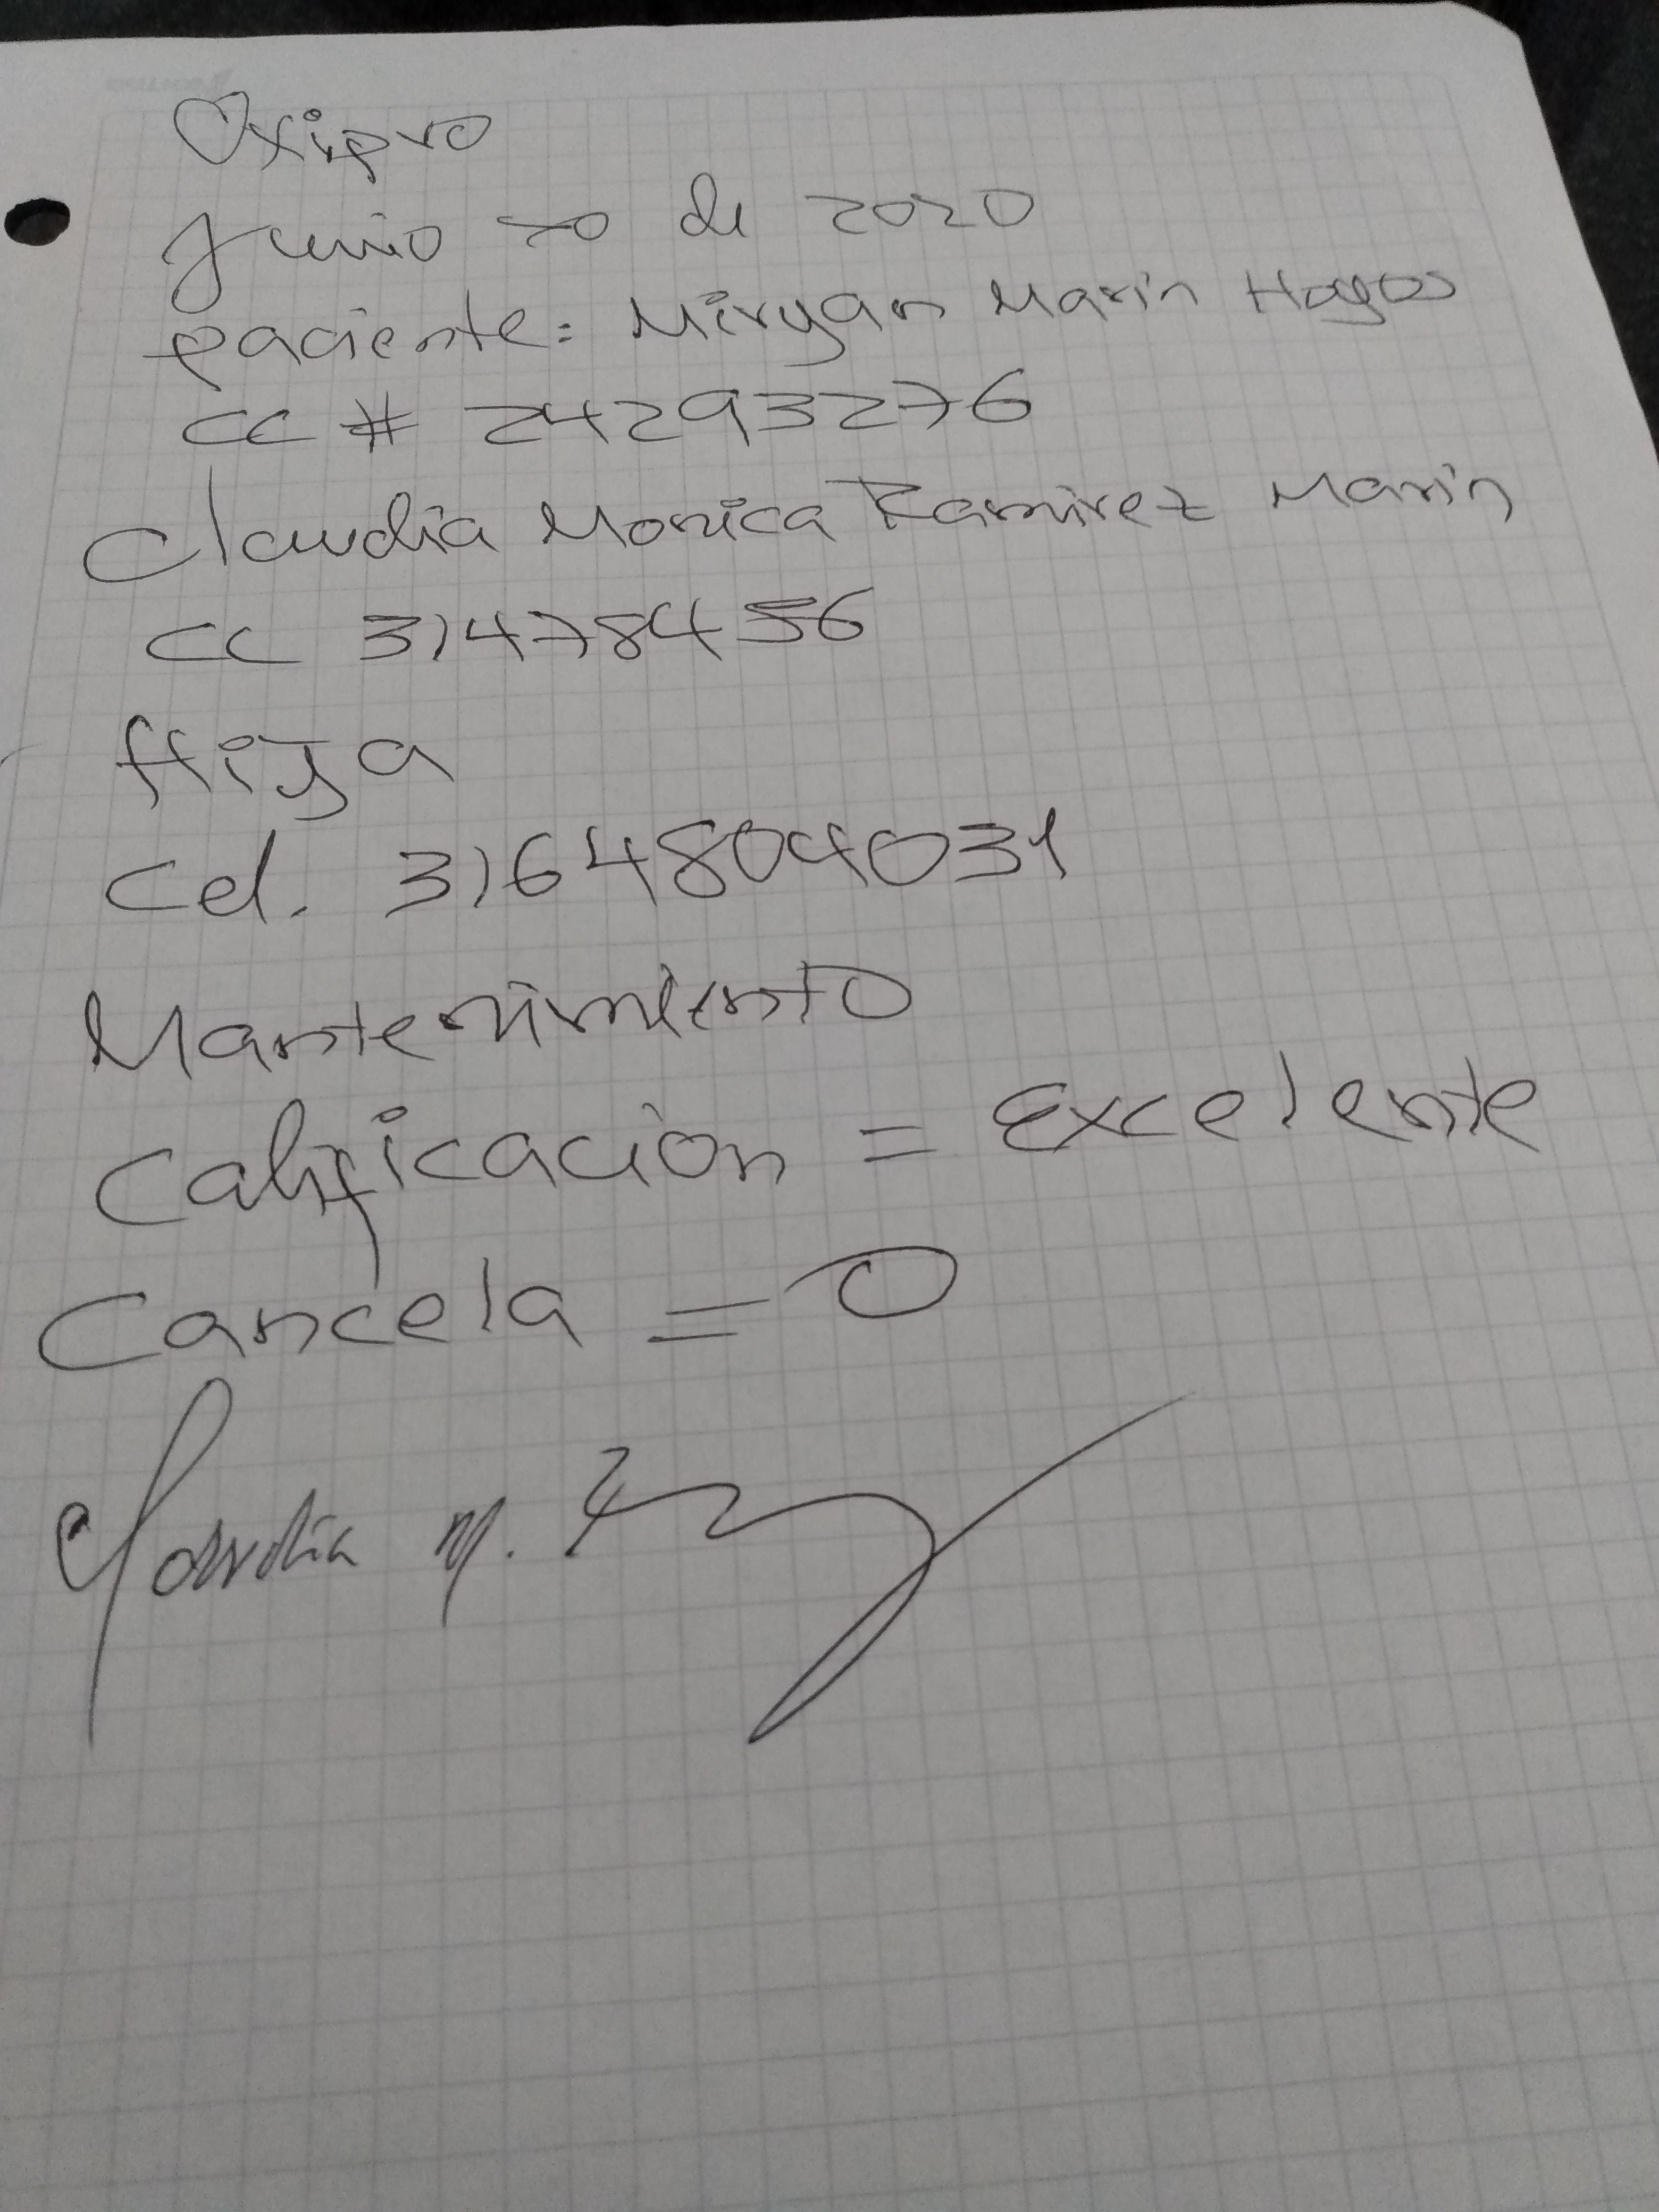 Oxipro
Junio 20 de 2020
paciente: Miryan Marin Hoyos
CC # 24293276
Claudia Monica Ramirez Marin
CC 314784 56
Hija
Cel. 3164804031
Mantenimiento
Calificación = Excelente
Cancela = 0
Claudia M.